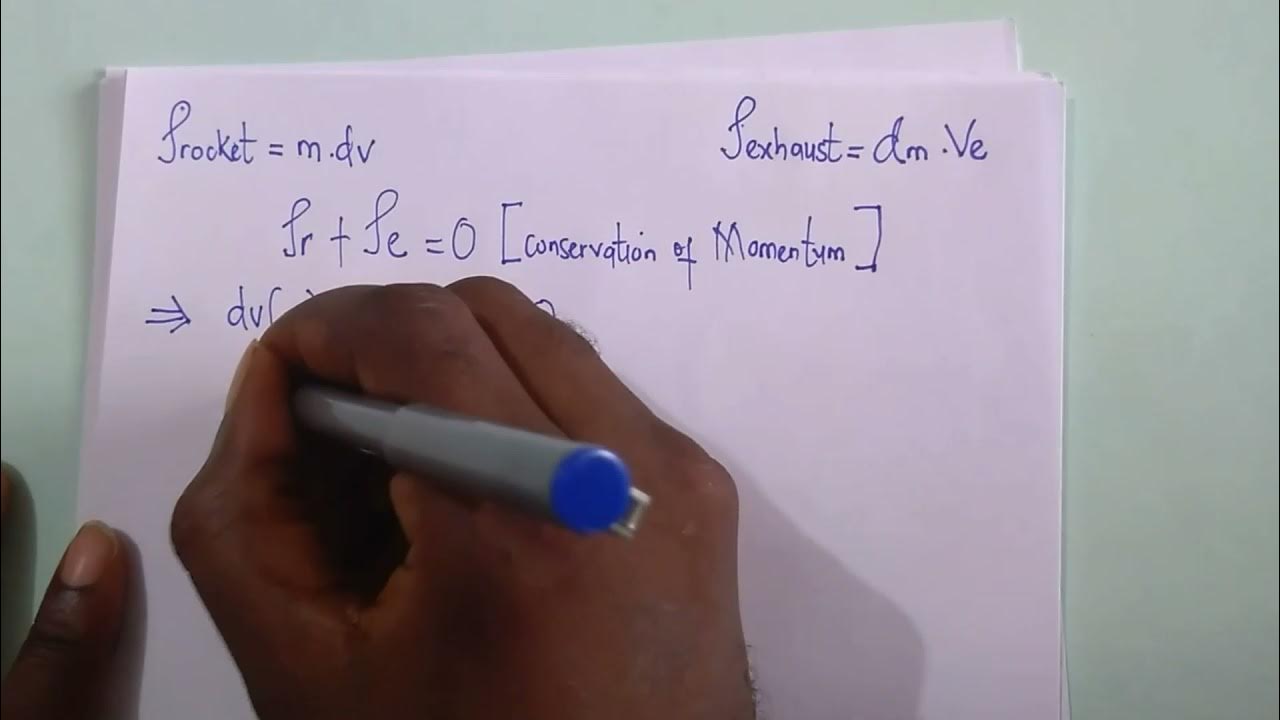 Procket = m.dv
Pexhaust = dm.Ve
Pr + Pe = 0 [conservation of Momentum]
⇒ dv(